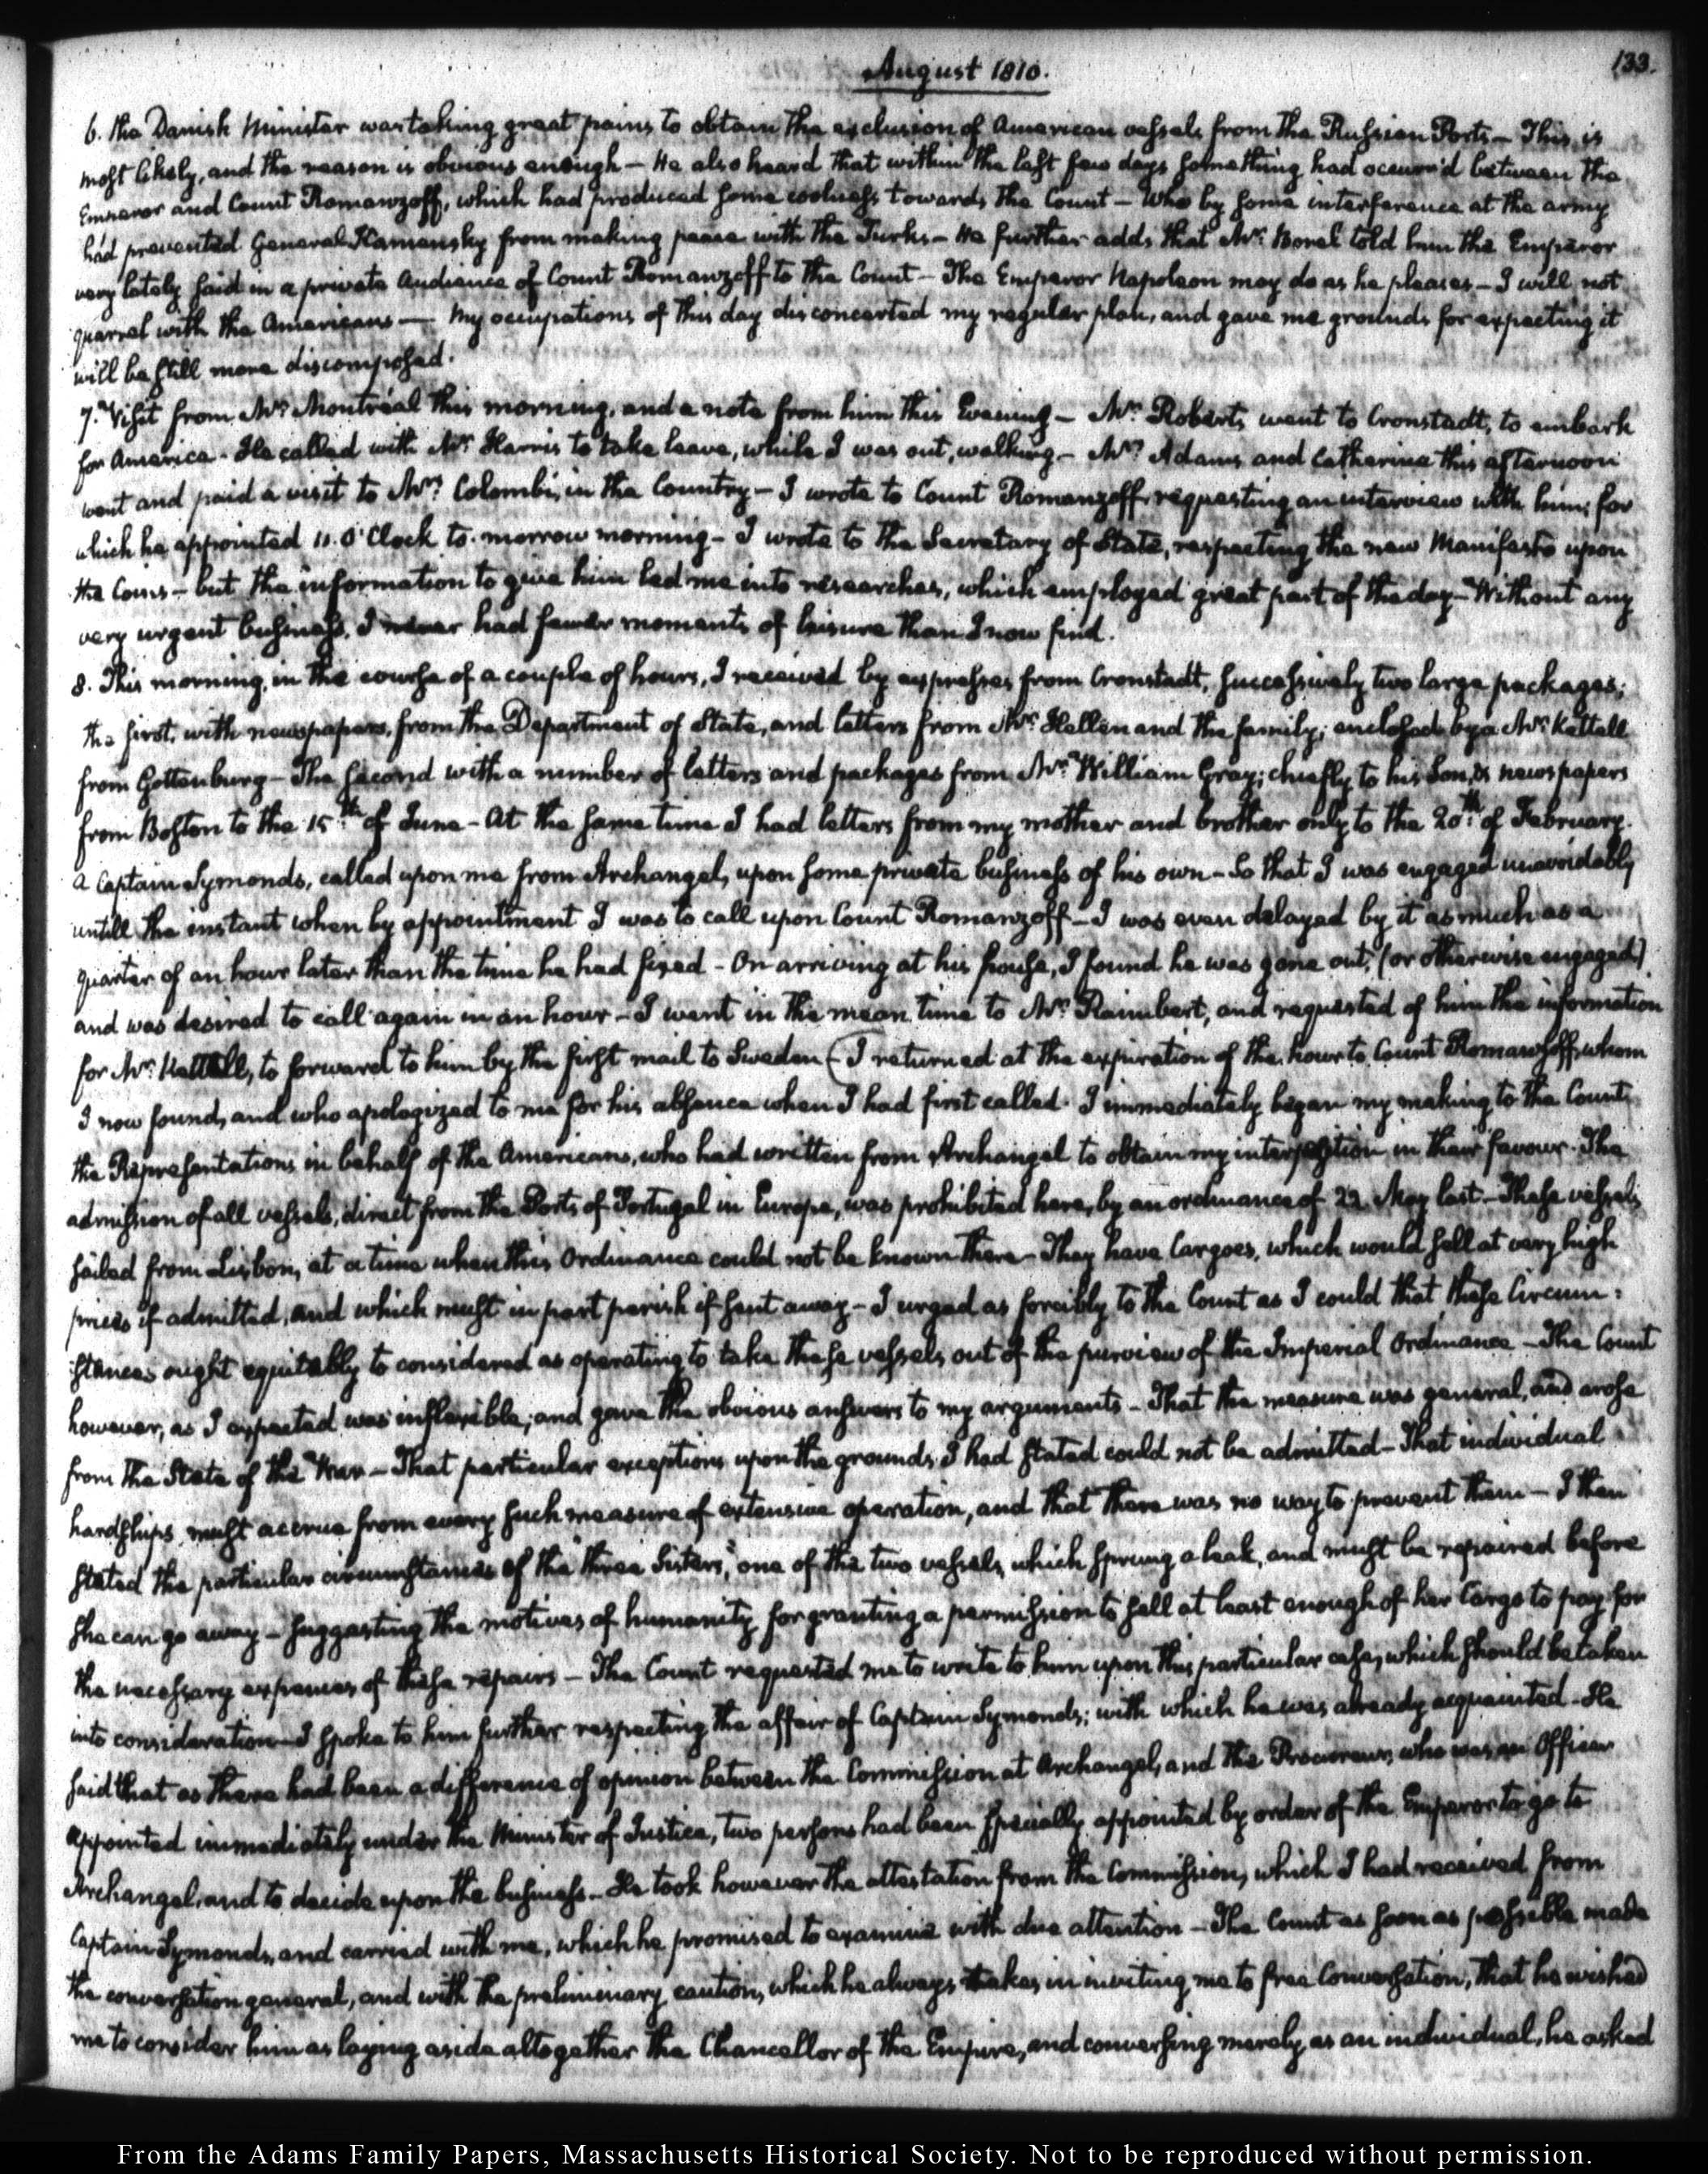 August 1810.
133.
6. the Danish Minister was taking great pains to obtain the exclusion of American vessels from the Russian Ports — This is
most likely, and the reason is obvious enough — He also heard that within the last few days something had occurr'd between the
Emperor and Count Romanzoff, which had produced some coolness towards the Count — Who by some interference at the army
had prevented General Kamensky from making peace with the Turks — He further adds that Mr. Borel told him the Emperor
very lately said in a private Audience of Count Romanzoff to the Count — The Emperor Napoleon may do as he pleases — I will not
quarrel with the Americans — My occupations of this day disconcerted my regular plan, and gave me grounds for expecting it
will be still more discomposed.
7. Visit from Mr. Montréal this morning, and a note from him this Evening — Mr. Roberts went to Cronstadt, to embark
for America. He called with Mr. Harris to take leave, while I was out, walking — Mrs. Adams and Catherine this afternoon
went and paid a visit to Mrs. Colombi, in the Country — I wrote to Count Romanzoff, requesting an interview with him; for
which he appointed 11. O'Clock to-morrow morning — I wrote to the Secretary of State, respecting the new Manifesto upon
the Coins — but the information to give him led me into researches, which employed great part of the day — Without any
very urgent business, I never had fewer moments of leisure than I now find.
8. This morning, in the course of a couple of hours, I received by expresses from Cronstadt, successively two large packages;
the first, with newspapers, from the Department of State, and letters from Mr. Hellen and the family; enclosed by a Mr. Kettell
from Gottenburg — The second with a number of letters and packages from Mr. William Gray; chiefly to his Son, & newspapers
from Boston to the 15th. of June — At the same time I had letters from my mother and brother only to the 20th. of February.
A Captain Symonds, called upon me from Archangel, upon some private business of his own — So that I was engaged unavoidably
untill the instant when by appointment I was to call upon Count Romanzoff — I was even delayed by it as much as a
quarter of an hour later than the time he had fixed — On arriving at his house, I found he was gone out, (or otherwise engaged)
and was desired to call again in an hour — I went in the mean time to Mr. Raimbert, and requested of him the information
for Mr. Kettell, to forward to him by the first mail to Sweden (I returned at the expiration of the hour to Count Romanzoff, whom
I now found, and who apologized to me for his absence when I had first called. I immediately began my making to the Count,
the Representations in behalf of the Americans, who had written from Archangel to obtain my interposition in their favour. The
admission of all vessels, direct from the Ports of Portugal in Europe, was prohibited here, by an ordinance of 22 May last — These vessels
sailed from Lisbon, at a time when this Ordinance could not be known there — They have Cargoes, which would sell at very high
prices if admitted, and which must in part perish if sent away — I urged as forcibly to the Count as I could that these Circum:
:stances ought equitably to considered as operating to take these vessels out of the purview of the Imperial Ordinance — The Count
however, as I expected was inflexible, and gave the obvious answers to my arguments — That the measure was general, and arose
from the State of the War — That particular exceptions upon the grounds I had stated could not be admitted — That individual
hardships must accrue from every such measure of extensive operation, and that there was no way to prevent them — I then
stated the particular circumstances of the "three Sisters," one of the two vessels, which sprung a leak, and must be repaired before
she can go away — suggesting the motives of humanity for granting a permission to sell at least enough of her Cargo to pay for
the necessary expences of these repairs — The Count requested me to write to him upon this particular case, which should be taken
into consideration — I spoke to him further respecting the affair of Captain Symonds; with which he was already acquainted — He
said that as there had been a difference of opinion between the Commission at Archangel, and the Procureur, who was an Officer
appointed immediately under the Minister of Justice, two persons had been specially appointed by order of the Emperor to go to
Archangel, and to decide upon the business — He took however the attestation from the Commission, which I had received from
Captain Symonds, and carried with me, which he promised to examine with due attention — The Count as soon as possible made
the conversation general, and with the preliminary caution, which he always takes in inviting me to free Conversation, that he wished
me to consider him as laying aside altogether the Chancellor of the Empire, and conversing merely as an individual, he asked
From the Adams Family Papers, Massachusetts Historical Society. Not to be reproduced without permission.